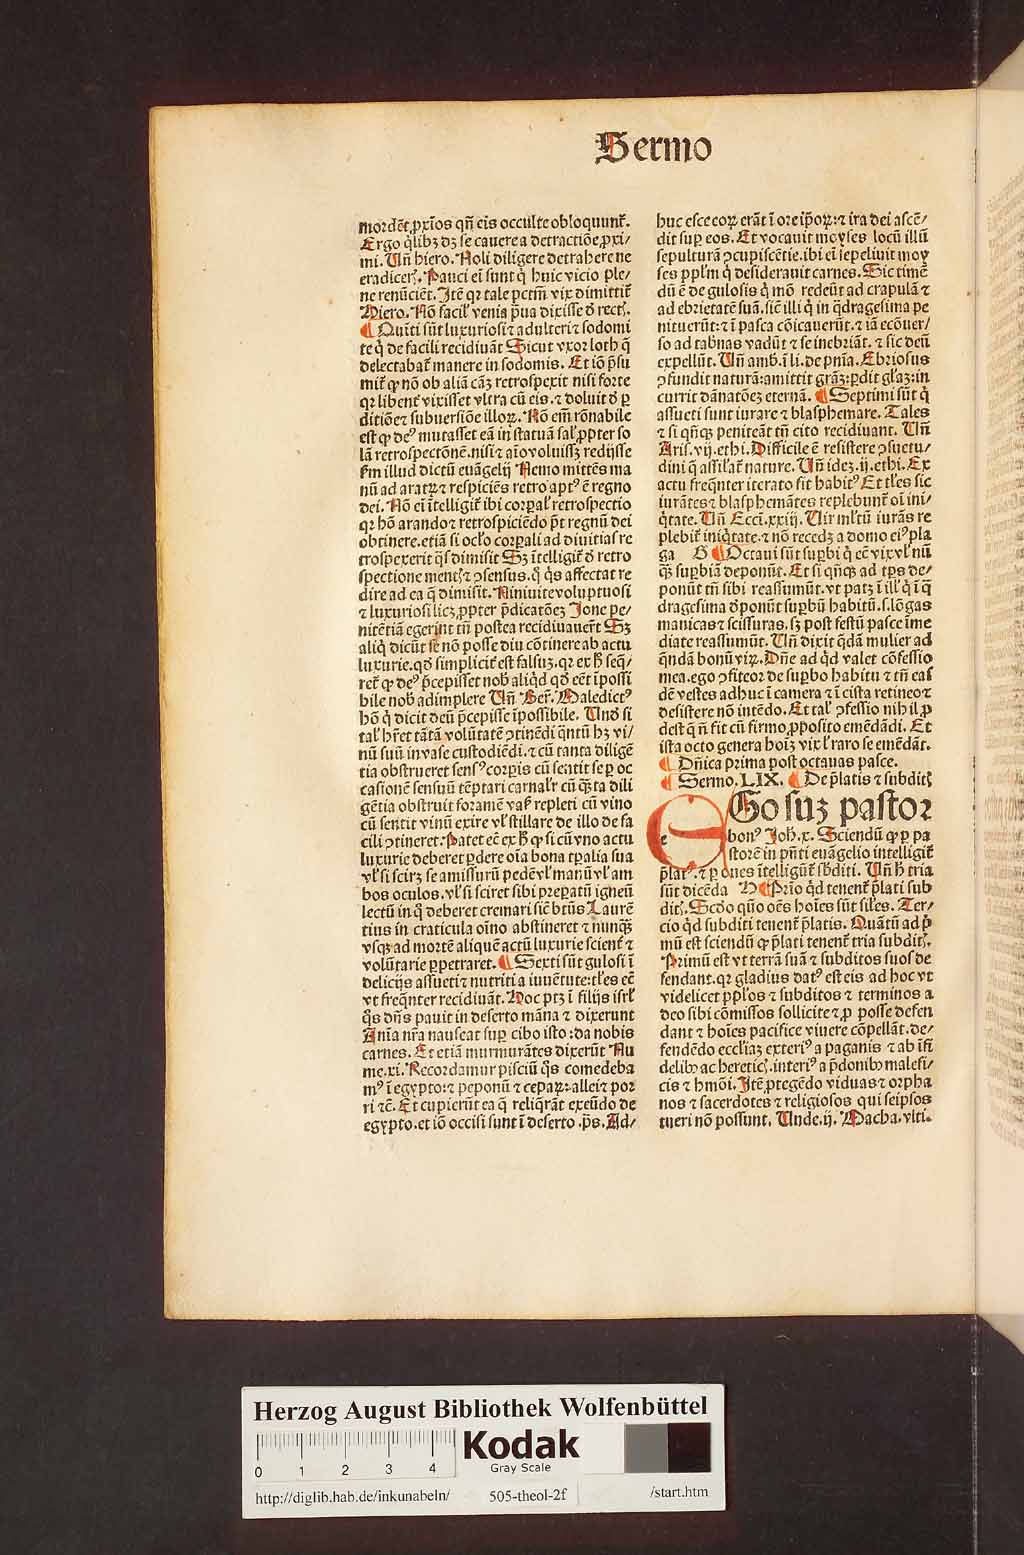 Sermo
mordẽt ꝓxĩos qñ eis occulte obloquunť.
Ergo q̃libꝫ dꝫ se cauere a detractiõe ꝓxi/
mi. Vñ hiero. Noli diligere detrahere ne
eradiceris. Pauci ei sunt q̃ huic vicio ple/
ne renũciẽt. Itẽ qꝛ tale pctm̃ vix dimittiť
Hiero. Nõ facil' venia ꝑua dixisse de rect.
¶ Quiti sũt luxuriosi ⁊ adulteri ⁊ sodomi
te q̃ de facili recidiuãt Sicut vxor loth q̃
delectabať manere in sodomis. Et iõ p̃su
mit ꝙ nõ ob aliã cãꝫ retrospexit nisi forte
qꝛ libenť vixisset vltra cũ eis. ⁊ doluit ð ꝑ
ditiõe ⁊ subuersiõe illoꝝ. Nõ em̃ rõnabile
est ꝙ deꝰ mutasset eã in statuã sal' ꝓpter so
lã retrospectonẽ. nisi ⁊ aĩo voluissꝫ redijsse
ẜm illud dictũ euãgelij Nemo mittẽs ma
nũ ad aratꝝ ⁊ respiciẽs retro aptꝰ ẽ regno
dei. Nõ ei ĩtelligiť ibi corꝑal' retrospectio
qꝛ hõ arando ⁊ retrospiciẽdo põt regnũ dei
obtinere. etiã si oc'lo corꝑali ad diuitias re
trospexerit q̃s dimisit Sꝫ ĩtelligiť ð retro
spectione mentis ⁊ ꝯsensus. q̃ q̃s affectat re
dire ad ea q̃ dimisit. Niniuite voluptuosi
⁊ luxuriosi licꝫ ꝓpter p̃dicatõeꝫ Jone pe/
nitẽtiã egerint tñ postea recidiuauerũt Sꝫ
aliq̃ dicũt se nõ posse diu cõtinere ab actu
luxurie. qð simplicit' est falsuꝫ. qꝛ ex h̃ seq̃/
ret' ꝙ deꝰ p̃cepisset nob' aliq̃d qð eẽt ĩpossi
bile nob' adimplere Vñ Ber. Maledictꝰ
hõ q̃ dicit deũ p̃cepisse ĩpossibile. Vnð si
tal' hẽret tãtã volũtatẽ ꝯtinẽdi q̃ntũ hꝫ vi/
nũ suũ in vase custodiẽdi. ⁊ cũ tanta diligẽ
tia obstrueret sensꝰ corꝑis cũ sentit se ꝑ oc
casionẽ sensuũ tẽptari carnal'r cũ q̃ta dili
gẽtia obstruit foramẽ vas' repleti cũ vino
cũ sentit vinũ exire vl' stillare de illo de fa
cili ꝯtineret. Patet eẽ ex h̃ ꝙ si cũ vno actu
luxurie deberet ꝑdere oĩa bona tꝑalia sua
vl' si scirꝫ se amissurũ pedẽ vl' manũ vl' am
bos oculos. vl' si sciret sibi preparatũ igneũ
lectũ in q̃ deberet cremari sic̃ btũs Laurẽ
tius in craticula oĩno abstineret ⁊ nunqꝫ
vsqꝫ ad mortẽ aliquẽ actũ luxurie scient' ⁊
volũtarie ꝑpetraret. ¶ Sexti sũt gulosi ĩ
delicijs assueti ⁊ nutriti a iuuẽtute: tl'es eẽ
vt freq̃nter recidiuãt. Hoc ptꝫ ĩ filijs isrl'
q̃s dñs pauit in deserto mãna ⁊ dixerunt
Anĩa nr̃a nauseat suꝑ cibo isto: da nobis
carnes. Et etiã murmurãtes dixerũt Nu
me. xi. Recordamur pisciũ q̃s comedeba
mꝰ ĩ egypto: ⁊ peponũ ⁊ ceparꝝ: allei ⁊ por
ri ⁊c̃. Et cupierũt ea q̃ reliq̃rãt exeũdo de
egypto. et iõ occisi sunt ĩ deserto. p̃s. Ad/
huc esce eoꝝ erãt ĩ ore ip̃oꝝ: ⁊ ira dei ascẽ/
dit suꝑ eos. Et vocauit moyses locũ illũ
sepulturã ꝯcupiscẽtie. ibi ei sepeliuit moy
ses ppl'm q̃ desiderauit carnes. Sic timẽ
dũ ẽ de gulosis q̃ mõ redeũt ad crapulã ⁊
ad ebrietatẽ suã. sic̃ illi q̃ in q̃dragesima pe
nituerũt: ⁊ ĩ pasca cõicauerũt. ⁊ iã ecõuer/
so ad tab'nas vadũt ⁊ se inebriãt. ⁊ sic deũ
expellũt. Vñ amb. ĩ li. de pñia. Ebriosus
ꝯfundit naturã: amittit grãꝫ: ꝑdit gl'aꝫ: in
currit dãnatõeꝫ eternã. ¶ Septimi sũt q̃
assueti sunt iurare ⁊ blasphemare. Tales
⁊ si qñqꝫ peniteãt tñ cito recidiuant. Vñ
Aris. vij. ethi. Difficile ẽ resistere ꝯsuetu/
dini q̃ assil'at' nature. Vñ ideꝫ. ij. ethi. Ex
actu freq̃nter iterato fit habitꝰ Et tl'es sic
iurãtes ⁊ blasphemãtes replebunť oĩ ini/
q̃tate. Vñ Ecci. xxiij. Uir ml'tũ iurãs re
plebiť iniq̃tate. ⁊ nõ recedꝫ a domo eiꝰ pla
ga G ¶ Octaui sũt suꝑbi q̃ eẽ vix vl' nũ
qꝫ suꝑbiã deponũt. Et si qñqꝫ ad tꝑs de/
ponũt tñ sibi reassumũt. vt patꝫ ĩ ill' q̃ ĩ q̃
dragesima ðponũt suꝑbũ habitũ. s. lõgas
manicas ⁊ scissuras. sꝫ post festũ pasce ĩme
diate reassumũt. Vñ dixit q̃dã mulier ad
q̃ndã bonũ virꝫ. Dñe ad q̃d valet cõfessio
mea. ego ꝯfiteor de suꝑbo habitu ⁊ tñ eas
dẽ vestes adhuc ĩ camera ⁊ ĩ cista retineo ⁊
desistere nõ intẽdo. Et tal' ꝯfessio nihil ꝓ
dest q̃ ñ fit cũ firmo ꝓposito emẽdãdi. Et
ista octo genera hoĩꝫ vix l' raro se emẽdãt.
¶ Dñica prima post octauas pasce.
¶ Sermo. LIX. ¶ De p̃latis ⁊ subditis
EGo suꝫ pastor
bonꝰ Joh. x. Sciendũ ꝙ ꝑ pa
storẽ in p̃nti euãgelio intelligiť
p̃latꝰ. ⁊ ꝑ oues ĩtelligũť sb'diti. Vñ h̃ tria
sũt dicẽda H ¶ Prĩo q̃d tenent' p̃lati sub
ditis. Scðo quo oẽs hoĩes sũt siles. Ter/
cio q̃d subditi tenent' p̃latis. Quãtũ ad p̃
mũ est sciendũ ꝙ p̃lati tenent' tria subditis.
Primũ est vt terrã suã ⁊ subditos suos de
fendant. qꝛ gladius datꝰ est eis ad hoc vt
videlicet ppl'os ⁊ subditos ⁊ terminos a
deo sibi cõmissos sollicite ⁊ ꝓ posse defen
dant ⁊ hoĩes pacifice viuere cõpellãt. de/
fendẽdo eccl'iaꝫ exteriꝰ a paganis ⁊ ab ĩfi
delibꝰ ac hereticis. interiꝰ a p̃donibꝰ malefi/
cis ⁊ hmõi. Itẽ ꝓtegẽdo viduas ⁊ orpha
nos ⁊ sacerdotes ⁊ religiosos qui seipsos
tueri nõ possunt. Unde. ij. Macha. vlti.
Herzog August Bibliothek Wolfenbüttel
0 1 2 3 4
Kodak
Gray Scale
http://diglib.hab.de/inkunabeln/ 505-theol-2f /start.htm